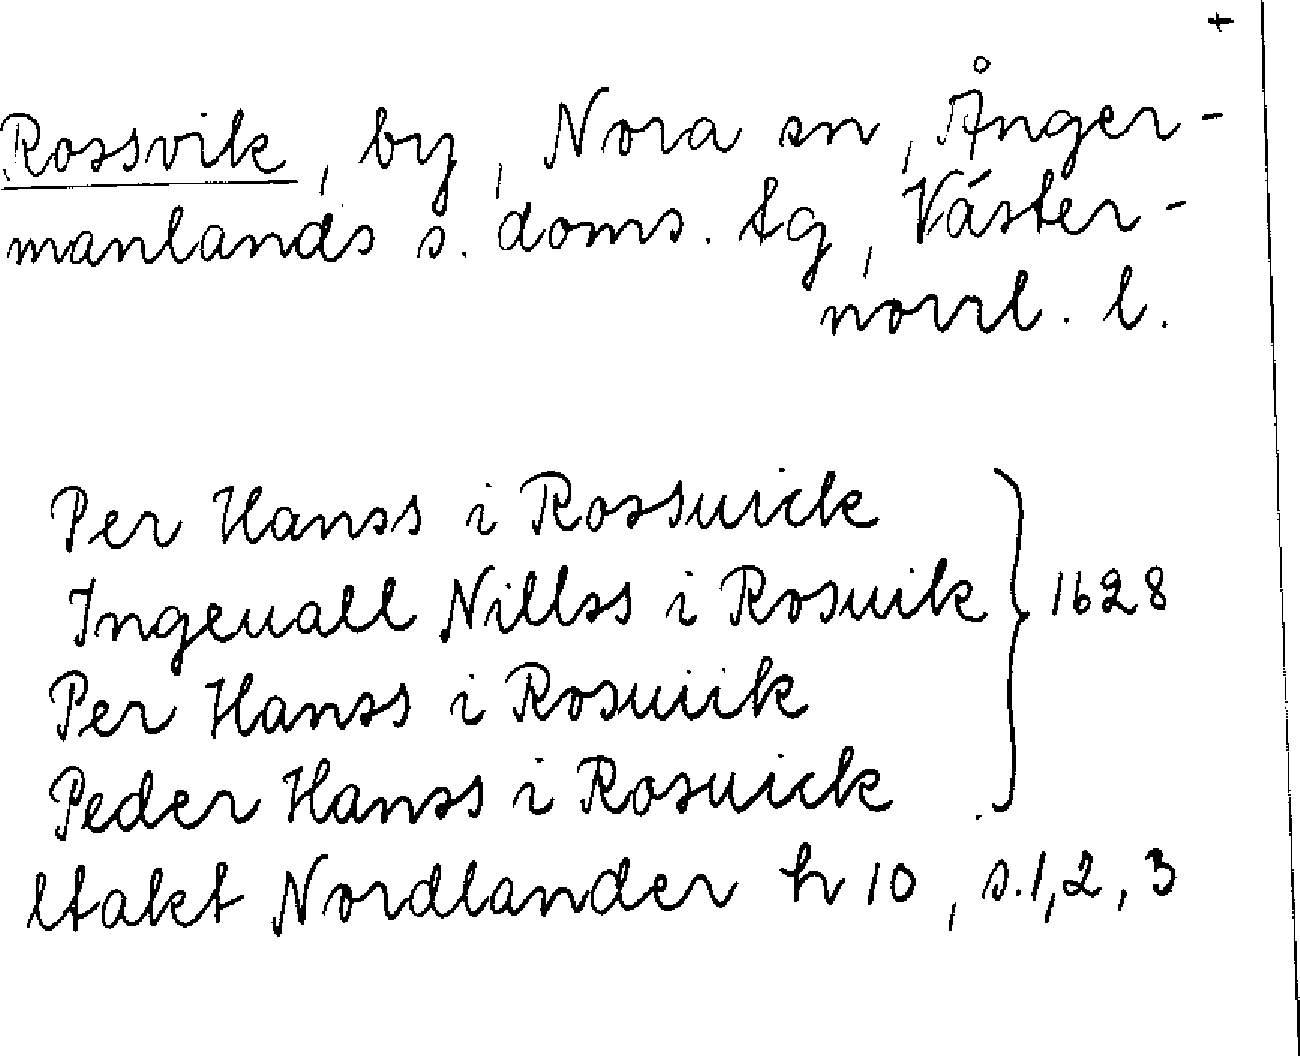 +
Rossvik, by, Nora sn, Ånger-
manlands s. doms. tg, Väster-
norrl. l.
Per Hanss i Rossuick
Ingeuall Nillss i Rosuik
Per Hanss i Rosuiik
Peder Hanss i Rosuick
1628
ltakt Nordlander h 10, s. 1, 2, 3